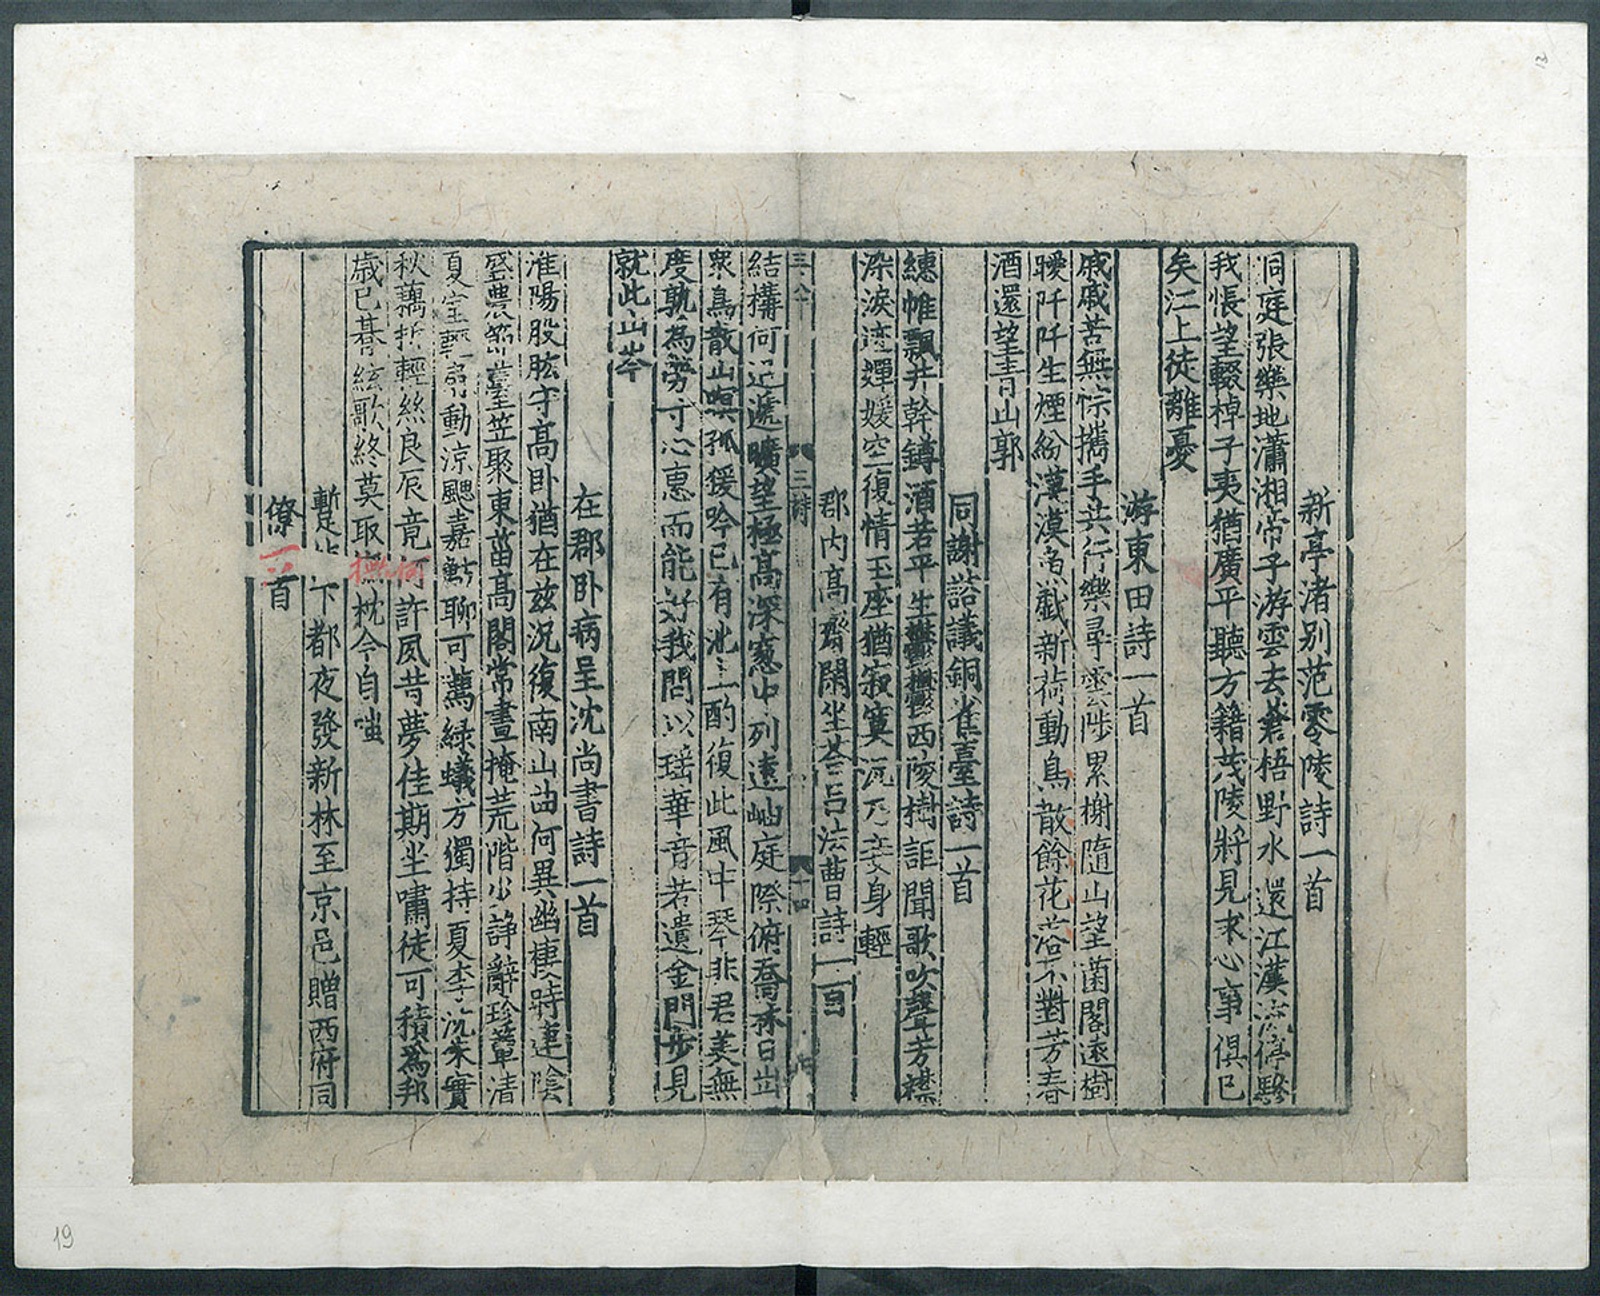 新亭渚別范零陵詩一首
洞庭張樂地瀟湘帝子游雲去蒼梧野水還江漢流停驂
我悵望輟棹子夷猶廣平聽方籍茂陵將見求心事俱已
矣江上徒離憂
游東田詩一首
戚戚苦無悰攜手共行樂尋雲陟累榭隨山望菌閣遠樹
曖阡阡生煙紛漠漠魚戲新荷動鳥散餘花落不對芳春
酒還望青山郭
同謝諮議銅雀臺詩一首
繐帷飄井幹罇酒若平生鬱鬱西陵樹詎聞歌吹聲芳襟
染淚迹嬋媛空復情玉座猶寂寞況乃妾身輕
郡內高齋閑坐荅呂法曹詩一首
三詩
十四
結構何迢遰曠望極高深窻中列遠岫庭際俯喬林日出
衆鳥散山暝孤猨吟已有池上酌復此風中琴非君美無
度孰為勞寸心惠而能好我問以瑤華音若遺金門步見
就此山岑
在郡卧病呈沈尚書詩一首
淮陽股肱守高卧猶在兹況復南山曲何異幽棲時連陰
盛農節臺笠聚東菑高閣常晝掩荒階少諍辭珍簟清
夏室輕扇動涼颸嘉魴聊可薦綠蟻方獨持夏李沈朱實
秋藕折輕絲良辰竟何許夙昔夢佳期坐嘯徒可積為邦
歲已朞絃歌終莫取撫枕令自嗤
暫使下都夜發新林至京邑贈西府同
僚一首
13
19